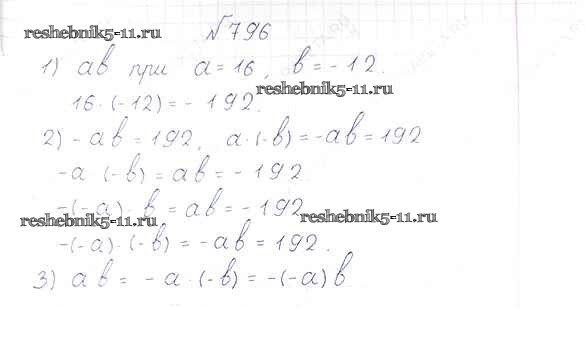 reshebnik5-11.ru
№796
1) ab при a = 16, b = -12.
reshebnik5-11.ru
16·(-12) = -192.
2) -ab = 192, a·(-b) = -ab = 192
-a·(-b) = ab = -192
-(-a)·b = ab = -192
reshebnik5-11.ru
reshebnik5-11.ru
-(-a)·(-b) = -ab = 192.
3) ab = -a·(-b) = -(-a)b